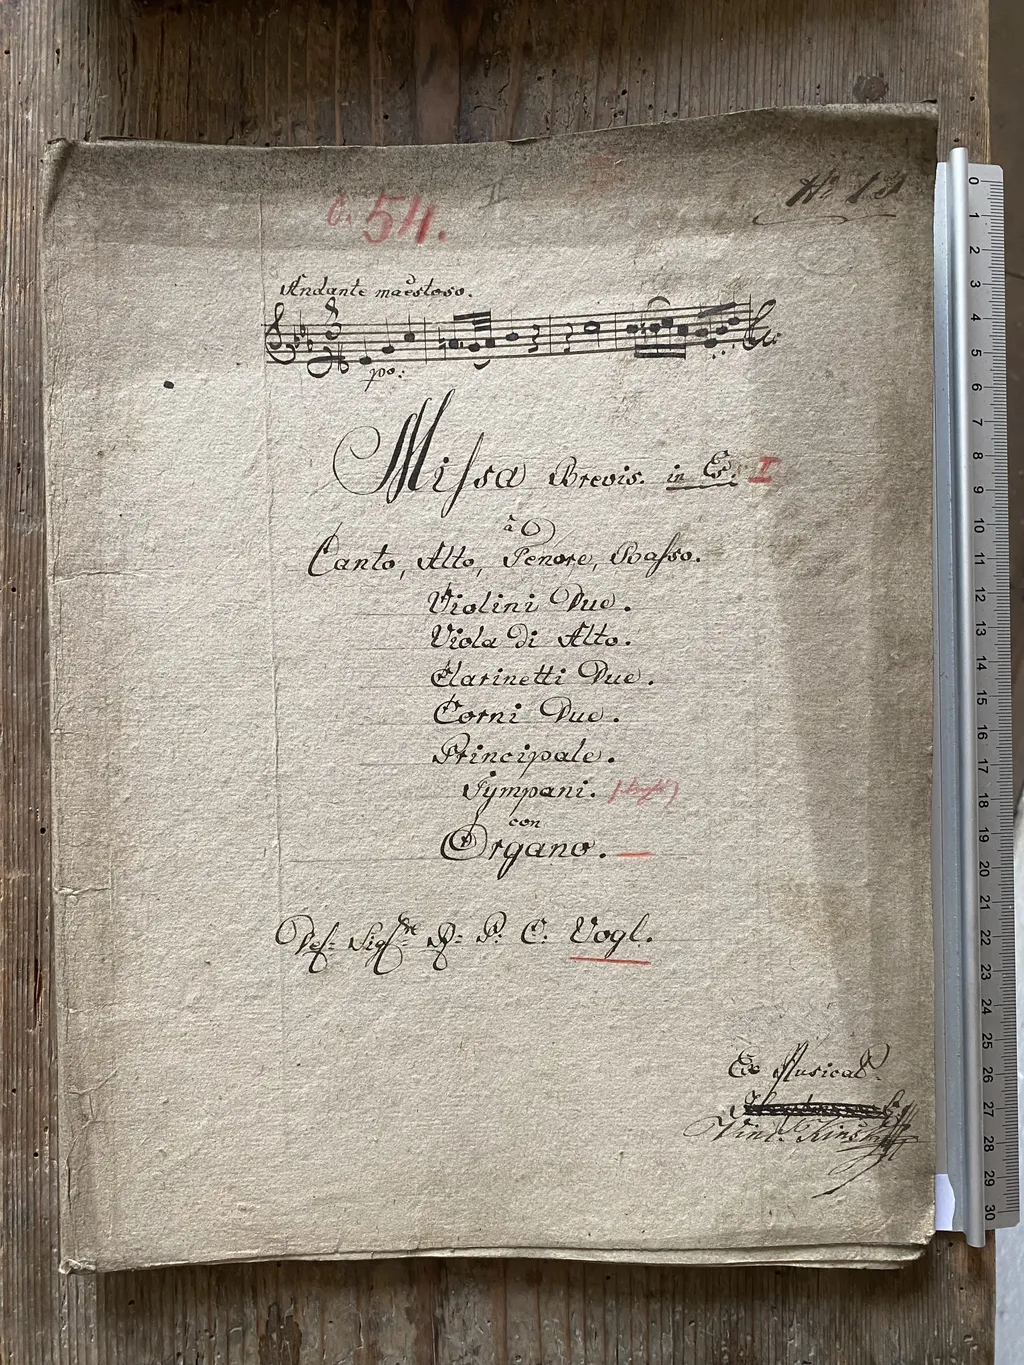 54.
Andante maestoso.
po:
Missa Brevis. in Es. I
à
Canto, Alto, Tenore, Basso.
Violini Due.
Viola di Alto.
Clarinetti Due.
Corni Due.
Principale.
Tympani.
con
Organo.
Del: Sigre R: P: C: Vogl.
Ex Musical
0
1
2
3
4
5
6
7
8
9
10
11
12
13
14
15
16
17
18
19
20
21
22
23
24
25
26
27
28
29
30